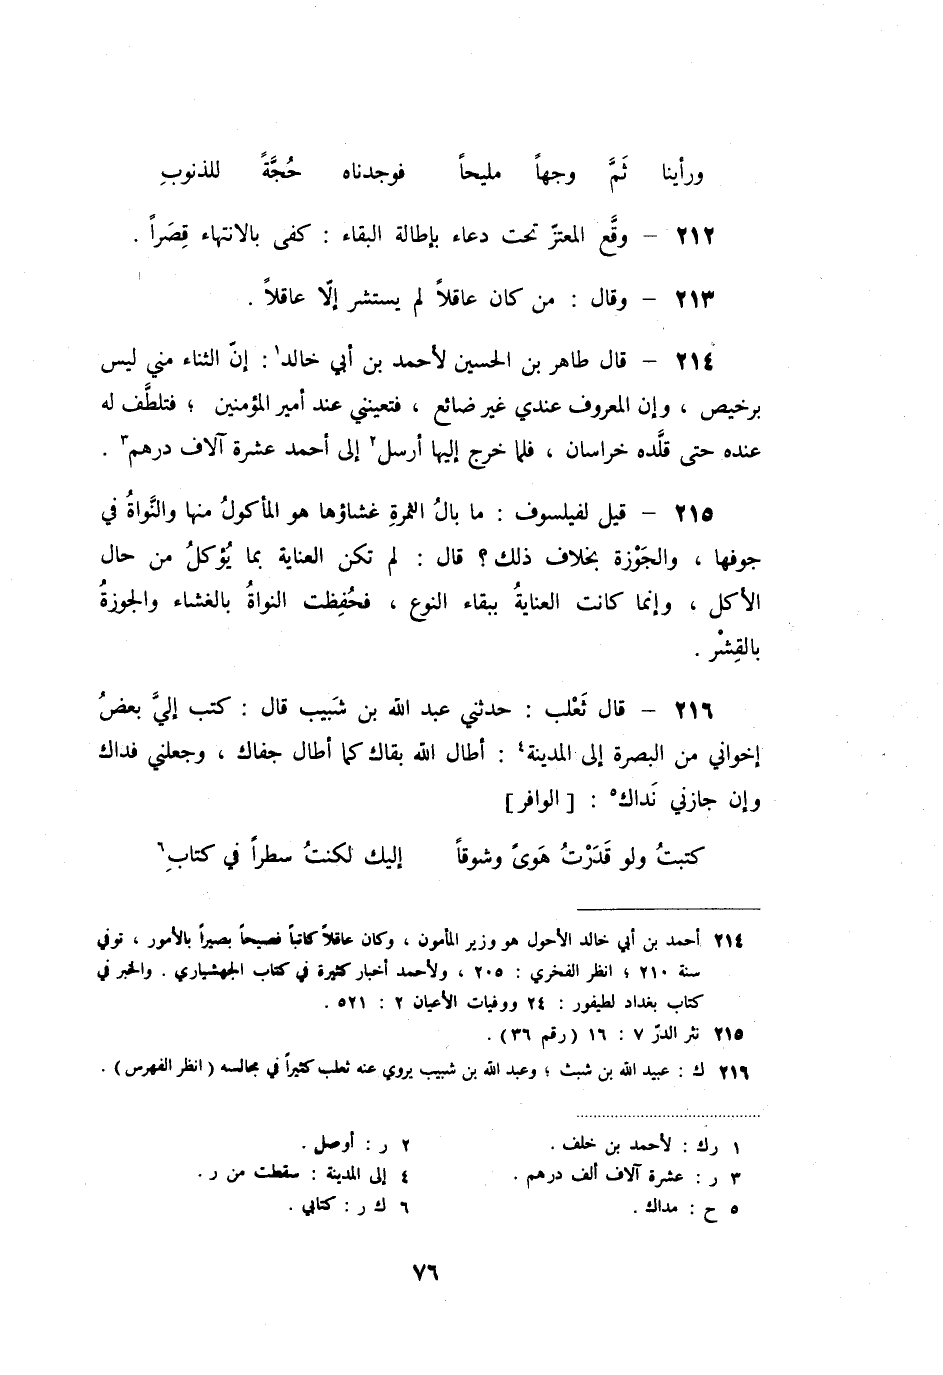 ورأينا ثَمَّ وجهاً مليحاً فوجدناه حُجَّةً للذنوبِ
٢١٢ – وقَّع المعتزّ تحت دعاء بإطالة البقاء : كفى بالانتهاء قِصَراً .
٢١٣ – وقال : من كان عاقلاً لم يستشر إلّا عاقلاً .
٢١٤ – قال طاهر بن الحسين لأحمد بن أبي خالد١ : إنّ الثناء مني ليس
برخيص ، وإن المعروف عندي غير ضائع ، فتعينني عند أمير المؤمنين ؛ فتلطَّف له
عنده حتى قلَّده خراسان ، فلما خرج إليها أرسل٢ إلى أحمد عشرة آلاف درهم٣ .
٢١٥ – قيل لفيلسوف : ما بالُ الثمرةِ غشاؤها هو المأكولُ منها والنَّواةُ في
جوفها ، والجَوْزة بخلاف ذلك ؟ قال : لم تكن العناية بما يُؤكلُ من حال
الأكل ، وإنما كانت العنايةُ ببقاء النوع ، فحُفِظت النواةُ بالغشاء والجوزةُ
بالقِشْر .
٢١٦ – قال ثَعْلب : حدثني عبد الله بن شَبيب قال : كتب إليَّ بعضُ
إخواني من البصرة إلى المدينة٤ : أطال الله بقاك كما أطال جفاك ، وجعلني فداك
وإن جازني نَداك٥ : [ الوافر ]
كتبتُ ولو قَدَرْتُ هَوىً وشوقاً إليك لكنتُ سطراً في كتابِ٦
٢١٤ أحمد بن أبي خالد الأحول هو وزير المأمون ، وكان عاقلاً كاتباً فصيحاً بصيراً بالأمور ، توفي
سنة ٢١٠ ؛ انظر الفخري : ٢٠٥ ، ولأحمد أخبار كثيرة في كتاب الجهشياري . والخبر في
كتاب بغداد لطيفور : ٢٤ ووفيات الأعيان ٢ : ٥٢١ .
٢١٥ نثر الدرّ ٧ : ١٦ ( رقم ٣٦ ) .
٢١٦ ك : عبيد الله بن شبث ؛ وعبد الله بن شبيب يروي عنه ثعلب كثيراً في مجالسه ( انظر الفهرس ) .
١ رك : لأحمد بن خلف . ٢ ر : أوصل .
٣ ر : عشرة آلاف ألف درهم . ٤ إلى المدينة : سقطت من ر .
٥ ح : مداك . ٦ ك ر : كتابي .
٧٦